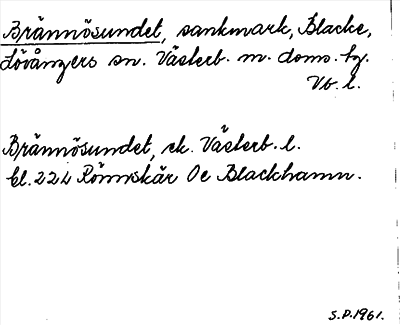 Brännösundet, sankmark, Blacke,
Lövångers sn. Västerb. m. doms. hg.
Vb. l.
Brännösundet, ek. Västerb. l.
bl. 224 Rönnskär Oc Blackhamn.
S.P.1961.